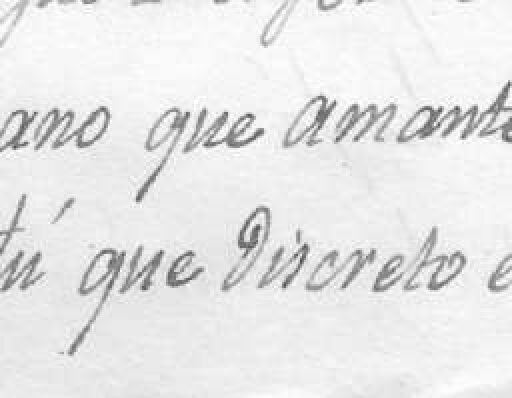 ano que amante
tú que Discreto e